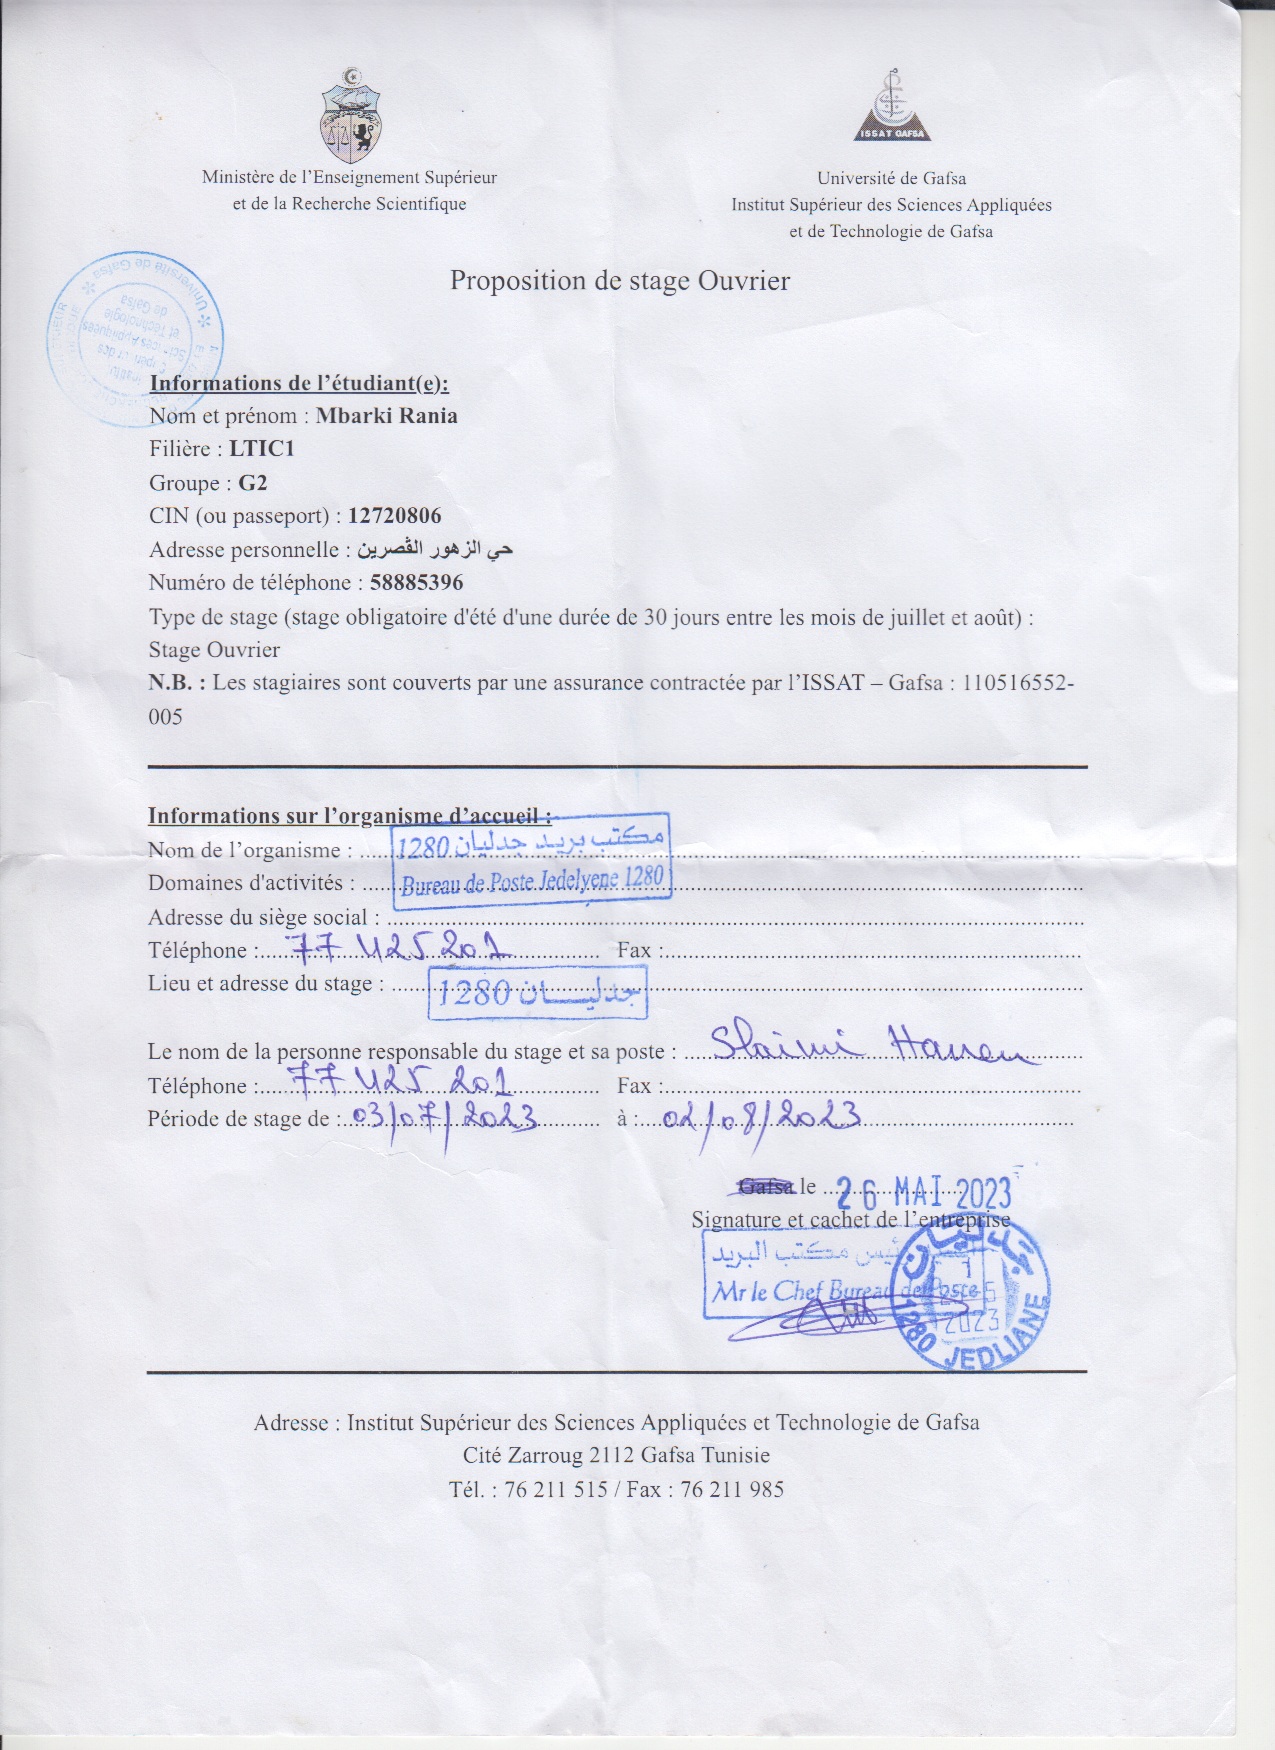 ISSAT GAFSA
Ministère de l'Enseignement Supérieur
et de la Recherche Scientifique
Université de Gafsa
Institut Supérieur des Sciences Appliquées
et de Technologie de Gafsa
Proposition de stage Ouvrier
Université de Gafsa
et Technologie
de Gafsa
Informations de l'étudiant(e):
Nom et prénom : Mbarki Rania
Filière : LTIC1
Groupe : G2
CIN (ou passeport) : 12720806
Adresse personnelle : حي الزهور الڨصرين
Numéro de téléphone : 58885396
Type de stage (stage obligatoire d'été d'une durée de 30 jours entre les mois de juillet et août) :
Stage Ouvrier
N.B. : Les stagiaires sont couverts par une assurance contractée par l'ISSAT – Gafsa : 110516552-
005
Informations sur l'organisme d'accueil :
Nom de l'organisme : مكتب بريد جدليان 1280
Domaines d'activités : Bureau de Poste Jedelyene 1280
Adresse du siège social :
Téléphone : 77 425 201 Fax :
Lieu et adresse du stage : جدليـــان 1280
Le nom de la personne responsable du stage et sa poste : Slaimi Hanen
Téléphone : 77 425 201 Fax :
Période de stage de : 03/07/2023 à : 02/08/2023
Gafsa le 26 MAI 2023
Signature et cachet de l'entreprise
رئيس مكتب البريد
Mr le Chef Bureau de Poste
جدليان
2023
1280 JEDLIANE
Adresse : Institut Supérieur des Sciences Appliquées et Technologie de Gafsa
Cité Zarroug 2112 Gafsa Tunisie
Tél. : 76 211 515 / Fax : 76 211 985